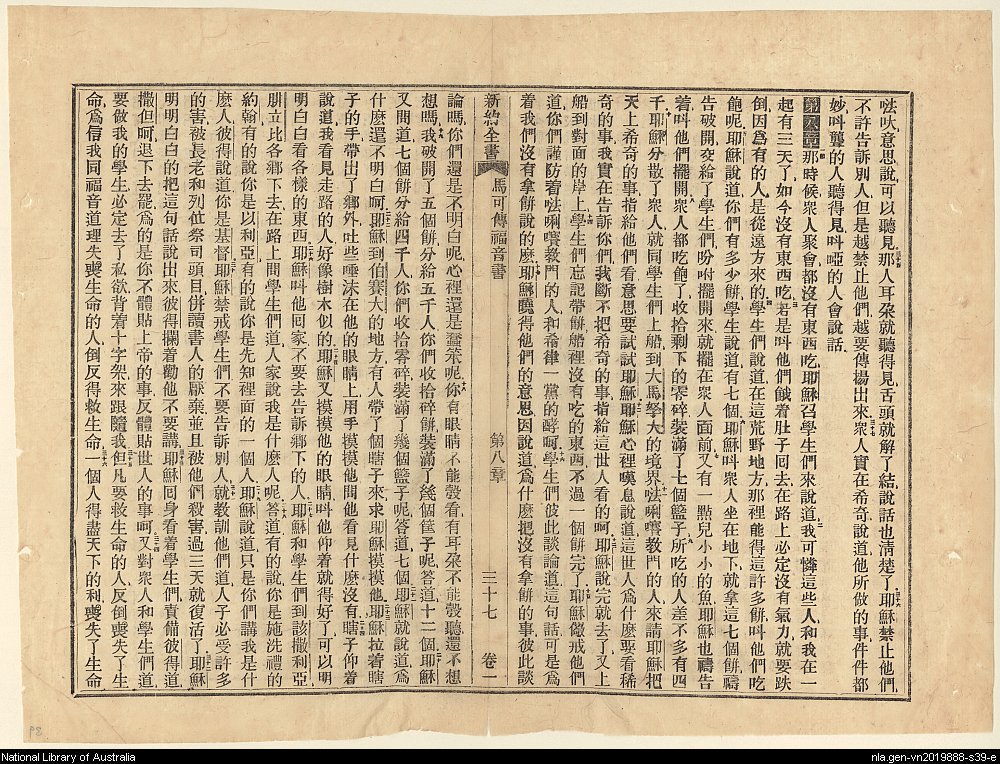 呔吠意思說可以聽見那人耳朶就聽得見舌頭就解了結說話也清楚了耶穌禁止他們
不許告訴別人但是越禁止他們越要傳揚出來衆人實在希奇說道他所做的事件件都
妙呌聾的人聽得見呌啞的人會說話
第八章那時候衆人聚會都沒有東西吃耶穌召學生們來說道我可憐這些人和我在一
起有三天了如今沒有東西吃若是呌他們餓着肚子回去在路上必定沒有氣力就要跌
倒因爲有的人是從遠方來的學生們說道在這荒野地方那裡能得這許多餅呌他們吃
飽呢耶穌說道你們有多少餅學生說道有七個耶穌呌衆人坐在地下就拿這七個餅禱
告破開交給了學生們吩咐擺開來就擺在衆人面前又有一點兒小小的魚耶穌也禱告
着呌他們擺開衆人都吃飽了收拾剩下的零碎裝滿了七個籃子所吃的人差不多有四
千耶穌分散了衆人就同學生們上船到大馬拏大的境界𠵽唎㘔教門的人來請耶穌把
天上希奇的事指給他們看意思要試試耶穌耶穌心裡嘆息說道這世人爲什麽要看稀
奇的事我實在告訴你們我斷不把希奇的事指給這世人看的呵耶穌說完就去了又上
船到對面的岸上學生們忘記帶餅船裡沒有吃的東西不過一個餅完了耶穌儆戒他們
道你們謹防着𠵽唎㘔教門的人和希律一黨的酵呵學生們彼此談論道這句話可是爲
着我們沒有拿餅說的麽耶穌曉得他們的意思因說道爲什麽把沒有拿餅的事彼此談
新約全書 馬可傳福音書 第八章 三十七 卷一
論嗎你們還是不明白呢心裡還是蠢笨呢你有眼睛不能彀看有耳朶不能彀聽還不想
想嗎我破開了五個餅分給五千人你們收拾碎餅裝滿了幾個筐子呢答道十二個耶穌
又問道七個餅分給四千人你們收拾零碎裝滿了幾個籃子呢答道七個耶穌就說道爲
什麽還不明白呵耶穌到伯賽大的地方有人帶了個瞎子來求耶穌摸摸他耶穌拉着瞎
子的手帶出了鄉外吐些唾沫在他的眼睛上用手摸摸他問他看見什麽沒有瞎子仰着
說道我看見走路的人好像樹木似的耶穌又摸摸他的眼睛呌他仰着就得好了可以明
明白白看各樣的東西耶穌呌他回家不要去告訴鄉下的人耶穌和學生們到該撒利亞
腓立比各鄉下去在路上問學生們道人家說我是什麽人呢答道有的說你是施洗禮的
約翰有的說你是以利亞有的說你是先知裡面的一個人耶穌說道只是你們講我是什
麽人彼得說道你是基督耶穌禁戒學生們不要告訴別人就教訓他們道人子必受許多
的害被長老和列位祭司頭目併讀書人的厭棄並且被他們殺害過三天就復活了耶穌
明明白白的把這句話說出來彼得攔着勸他不要講耶穌回身看着學生們責備彼得道
撒但呵退下去罷爲的是你不體貼上帝的事反體貼世人的事呵又對衆人和學生們道
要做我的學生必定去了私欲背着十字架來跟隨我但凡要救生命的人反倒喪失了生
命爲信我同福音道理失喪生命的人倒反得救生命一個人得盡天下的利喪失了生命
National Library of Australia
nla.gen-vn2019888-s39-e